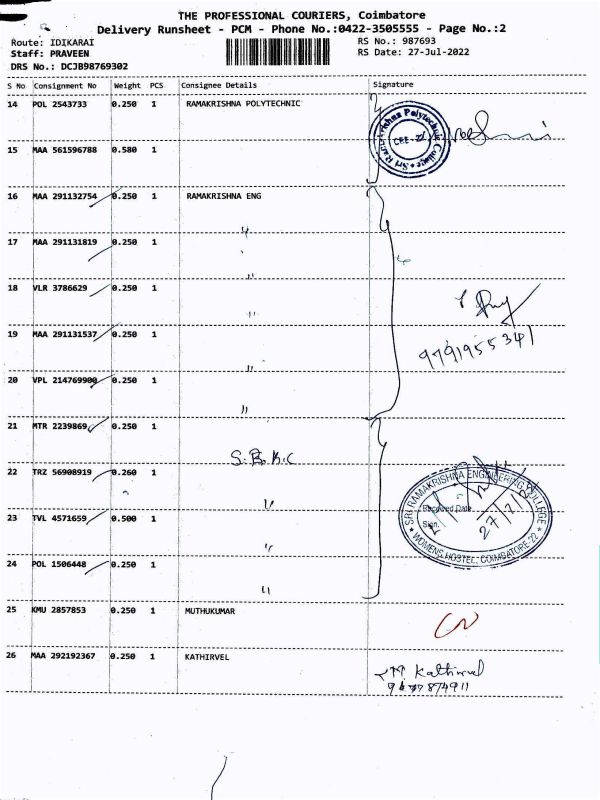 THE PROFESSIONAL COURIERS, Coimbatore
Delivery Runsheet - PCM - Phone No.:0422-3505555 - Page No.:2
Route: IDIKARAI RS No.: 987693
Staff: PRAVEEN RS Date: 27-Jul-2022
DRS No.: DCJB98769302
S No Consignment No Weight PCS Consignee Details Signature
14 POL 2543733 0.250 1 RAMAKRISHNA POLYTECHNIC
Sri Ramakrishna Polytechnic College
CBE-22
15 MAA 561596788 0.580 1
16 MAA 291132754 0.250 1 RAMAKRISHNA ENG
17 MAA 291131819 0.250 1 "
18 VLR 3786629 0.250 1 "
19 MAA 291131537 0.250 1 "
9791955341
20 VPL 214769900 0.250 1 "
21 MTR 2239869 0.250 1 "
S.R.K.C
22 TRZ 56908919 0.260 1
SRI RAMAKRISHNA ENGINEERING COLLEGE
Received Date
Sign.
27/7/
WOMENS HOSTEL, COIMBATORE-22
23 TVL 4571659 0.500 1 "
24 POL 1506448 0.250 1 "
"
25 KMU 2857853 0.250 1 MUTHUKUMAR
26 MAA 292192367 0.250 1 KATHIRVEL
Kathirvel